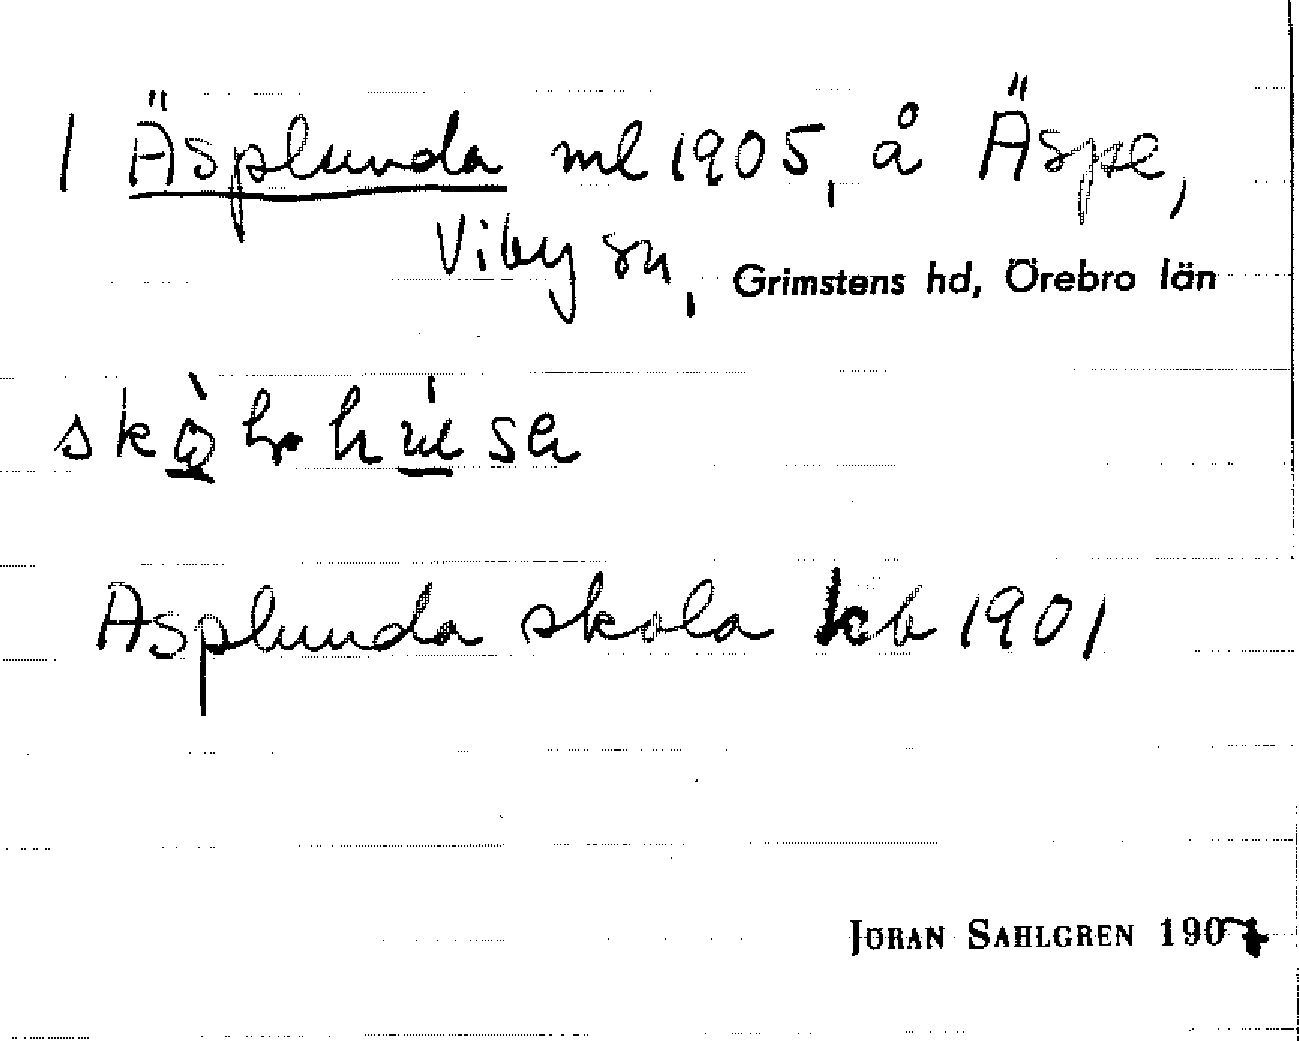 1 Äsplunda ml 1905, å Äspe,
Viby sn, Grimstens hd, Örebro län
Äsplunda skola kb 1901
JÖRAN SAHLGREN 1907